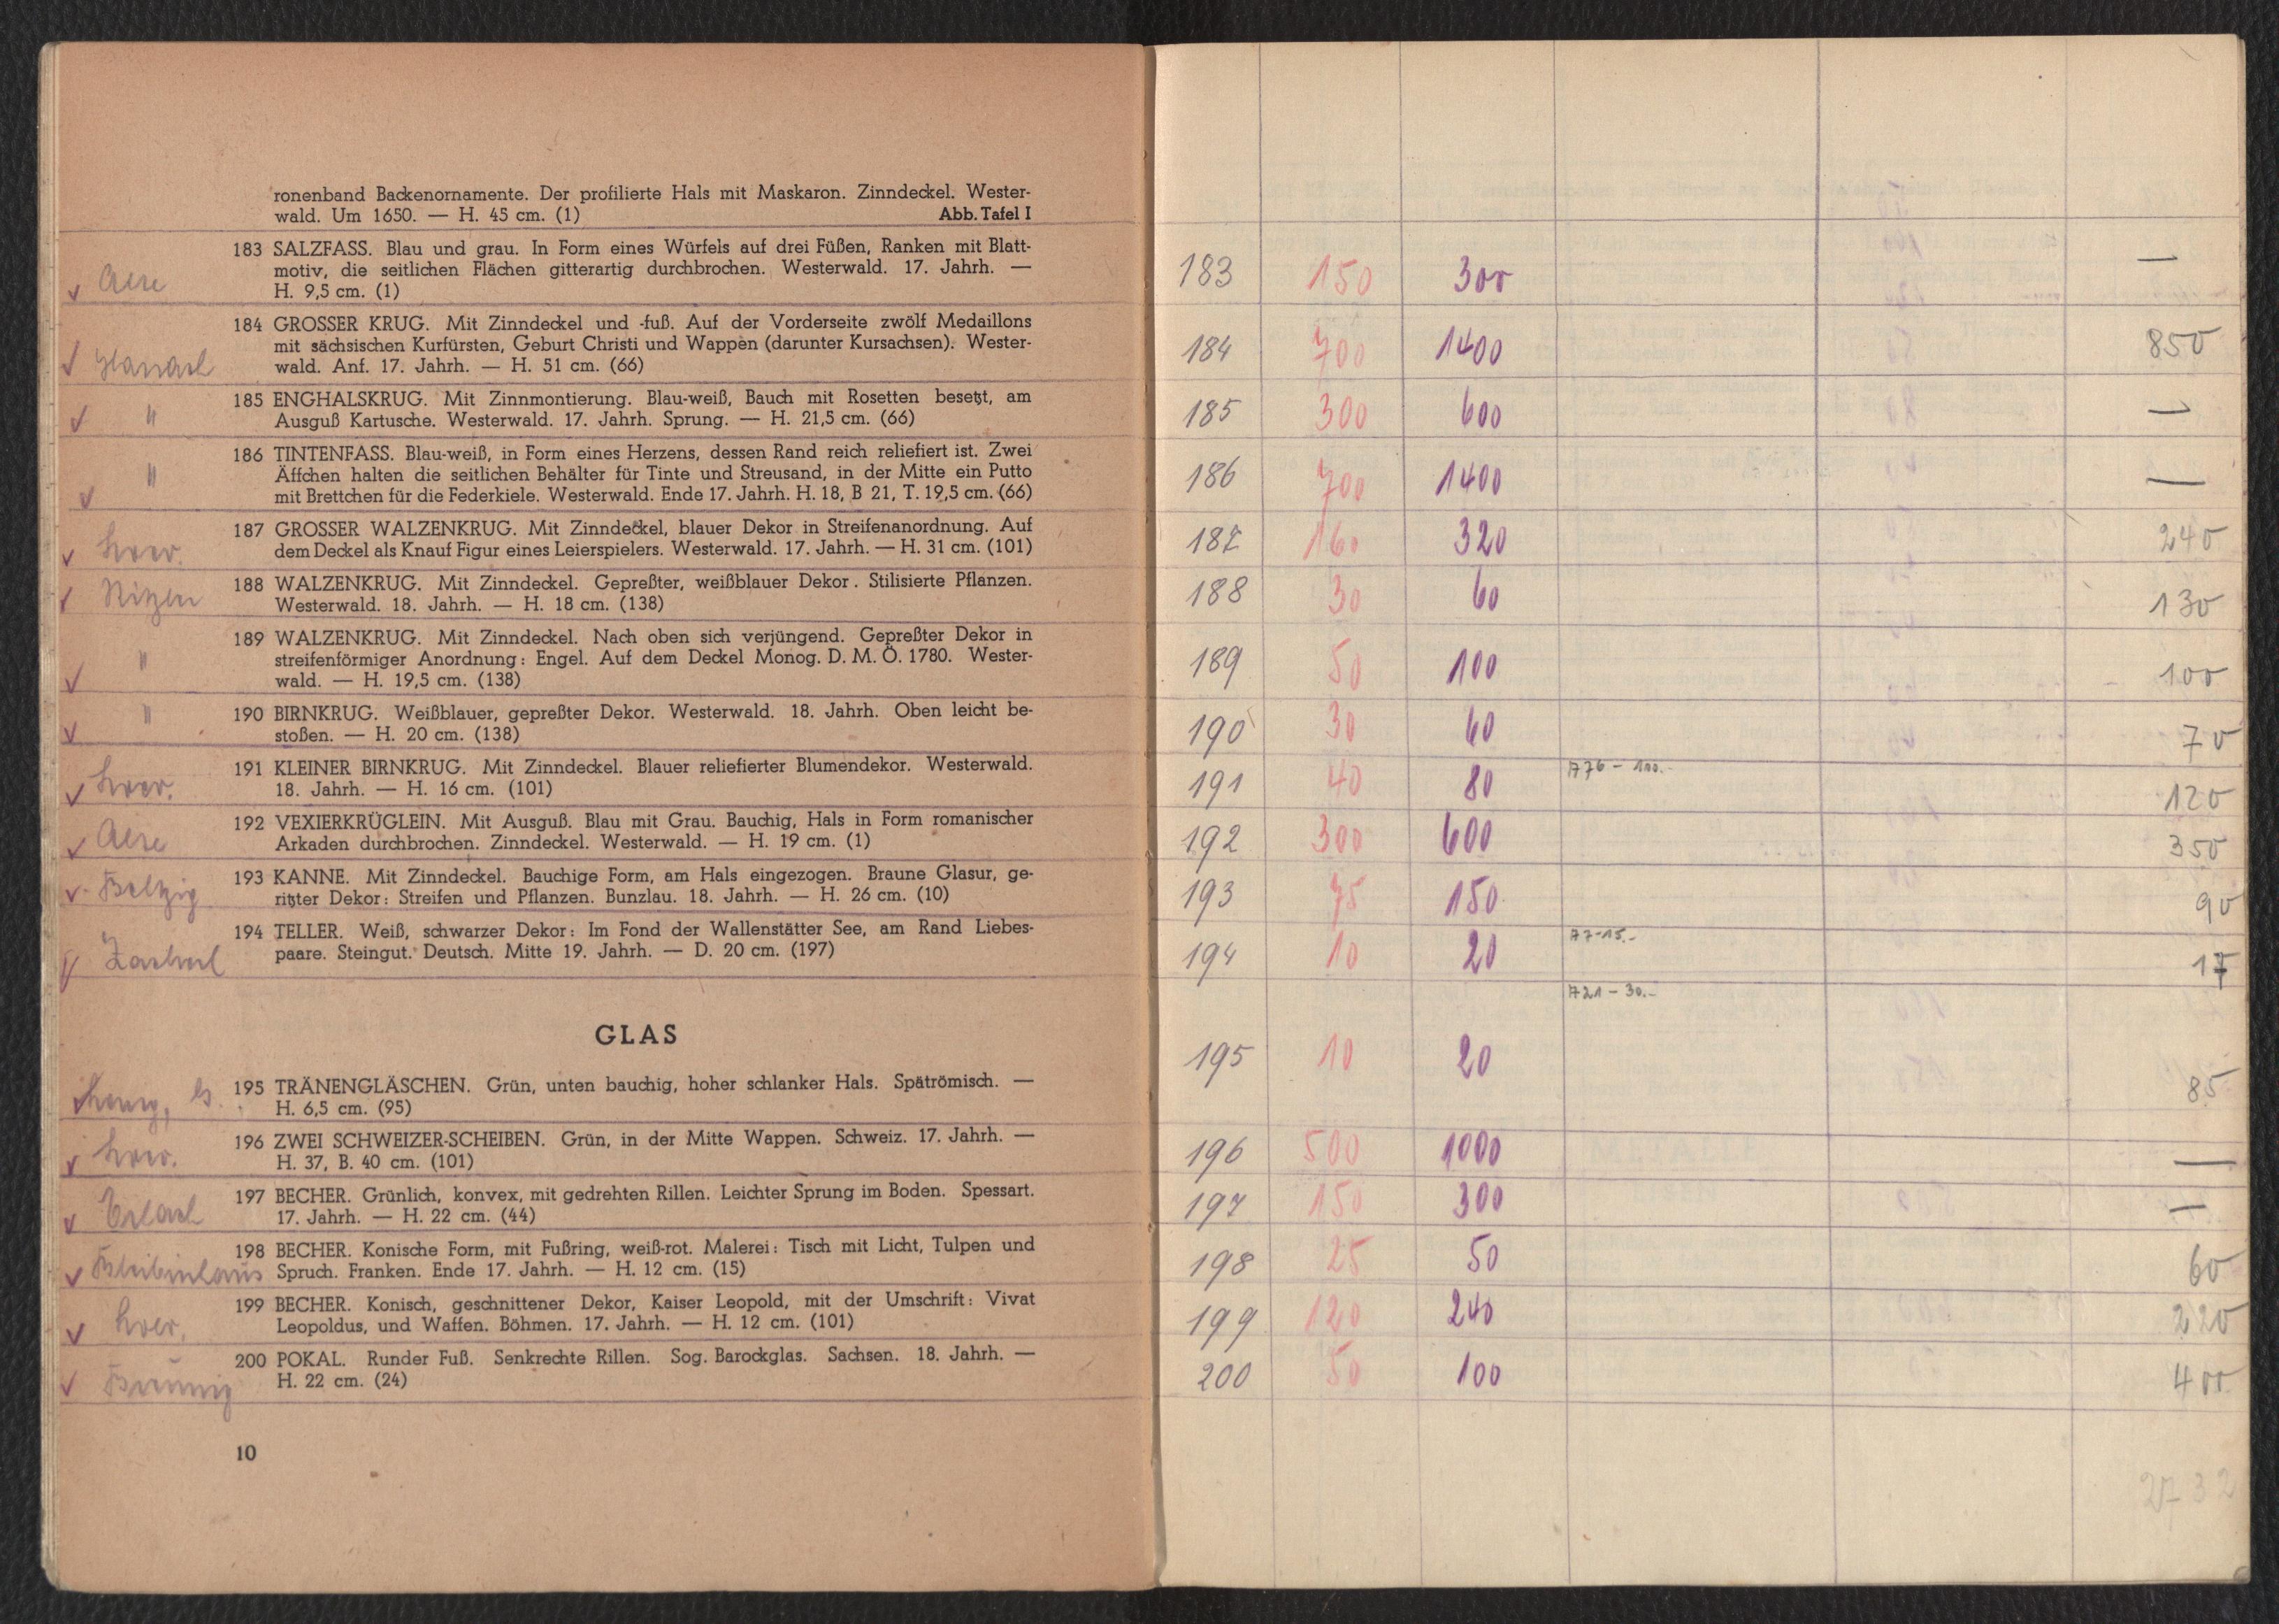 ronenband Backenornamente. Der profilierte Hals mit Maskaron. Zinndeckel. Wester-
wald. Um 1650. — H. 45 cm. (1) Abb. Tafel I
183 SALZFASS. Blau und grau. In Form eines Würfels auf drei Füßen, Ranken mit Blatt-
motiv, die seitlichen Flächen gitterartig durchbrochen. Westerwald. 17. Jahrh. —
H. 9,5 cm. (1)
184 GROSSER KRUG. Mit Zinndeckel und -fuß. Auf der Vorderseite zwölf Medaillons
mit sächsischen Kurfürsten, Geburt Christi und Wappen (darunter Kursachsen). Wester-
wald. Anf. 17. Jahrh. — H. 51 cm. (66)
185 ENGHALSKRUG. Mit Zinnmontierung. Blau-weiß, Bauch mit Rosetten besetzt, am
" Ausguß Kartusche. Westerwald. 17. Jahrh. Sprung. — H. 21,5 cm. (66)
186 TINTENFASS. Blau-weiß, in Form eines Herzens, dessen Rand reich reliefiert ist. Zwei
" Äffchen halten die seitlichen Behälter für Tinte und Streusand, in der Mitte ein Putto
mit Brettchen für die Federkiele. Westerwald. Ende 17. Jahrh. H. 18, B 21, T. 19,5 cm. (66)
187 GROSSER WALZENKRUG. Mit Zinndeckel, blauer Dekor in Streifenanordnung. Auf
dem Deckel als Knauf Figur eines Leierspielers. Westerwald. 17. Jahrh. — H. 31 cm. (101)
188 WALZENKRUG. Mit Zinndeckel. Gepreßter, weißblauer Dekor. Stilisierte Pflanzen.
Westerwald. 18. Jahrh. — H. 18 cm. (138)
189 WALZENKRUG. Mit Zinndeckel. Nach oben sich verjüngend. Gepreßter Dekor in
" streifenförmiger Anordnung: Engel. Auf dem Deckel Monog. D. M. Ö. 1780. Wester-
wald. — H. 19,5 cm. (138)
" 190 BIRNKRUG. Weißblauer, gepreßter Dekor. Westerwald. 18. Jahrh. Oben leicht be-
stoßen. — H. 20 cm. (138)
191 KLEINER BIRNKRUG. Mit Zinndeckel. Blauer reliefierter Blumendekor. Westerwald.
18. Jahrh. — H. 16 cm. (101)
192 VEXIERKRÜGLEIN. Mit Ausguß. Blau mit Grau. Bauchig, Hals in Form romanischer
Arkaden durchbrochen. Zinndeckel. Westerwald. — H. 19 cm. (1)
193 KANNE. Mit Zinndeckel. Bauchige Form, am Hals eingezogen. Braune Glasur, ge-
Belzig ritzter Dekor: Streifen und Pflanzen. Bunzlau. 18. Jahrh. — H. 26 cm. (10)
194 TELLER. Weiß, schwarzer Dekor: Im Fond der Wallenstätter See, am Rand Liebes-
paare. Steingut. Deutsch. Mitte 19. Jahrh. — D. 20 cm. (197)
GLAS
195 TRÄNENGLÄSCHEN. Grün, unten bauchig, hoher schlanker Hals. Spätrömisch. —
H. 6,5 cm. (95)
196 ZWEI SCHWEIZER-SCHEIBEN. Grün, in der Mitte Wappen. Schweiz. 17. Jahrh. —
H. 37, B. 40 cm. (101)
197 BECHER. Grünlich, konvex, mit gedrehten Rillen. Leichter Sprung im Boden. Spessart.
Erlach 17. Jahrh. — H. 22 cm. (44)
198 BECHER. Konische Form, mit Fußring, weiß-rot. Malerei: Tisch mit Licht, Tulpen und
Bleibinhaus Spruch. Franken. Ende 17. Jahrh. — H. 12 cm. (15)
199 BECHER. Konisch, geschnittener Dekor, Kaiser Leopold, mit der Umschrift: Vivat
Leopoldus, und Waffen. Böhmen. 17. Jahrh. — H. 12 cm. (101)
200 POKAL. Runder Fuß. Senkrechte Rillen. Sog. Barockglas. Sachsen. 18. Jahrh. —
H. 22 cm. (24)
10
183 150 300 —
184 700 1400 850
185 300 600 —
186 700 1400 —
187 160 320 240
188 30 60 130
189 50 100 100
190 30 60 70
191 40 80 A76 - 100.- 120
192 300 600 350
193 75 150 90
194 10 20 A7-15.- 17
A21 - 30.-
195 10 20 85
196 500 1000 —
197 150 300 —
198 25 50 60
199 120 240 220
200 50 100 400
2732